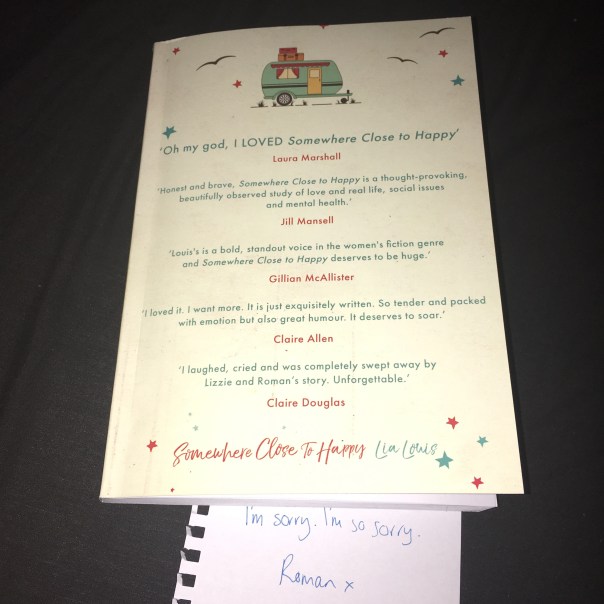 'Oh my god, I LOVED Somewhere Close to Happy'
Laura Marshall
'Honest and brave, Somewhere Close to Happy is a thought-provoking,
beautifully observed study of love and real life, social issues
and mental health.'
Jill Mansell
'Louis's is a bold, standout voice in the women's fiction genre
and Somewhere Close to Happy deserves to be huge.'
Gillian McAllister
'I loved it. I want more. It is just exquisitely written. So tender and packed
with emotion but also great humour. It deserves to soar.'
Claire Allen
'I laughed, cried and was completely swept away by
Lizzie and Roman's story. Unforgettable.'
Claire Douglas
Somewhere Close To Happy Lia Louis
I'm sorry. I'm so sorry.
Roman x